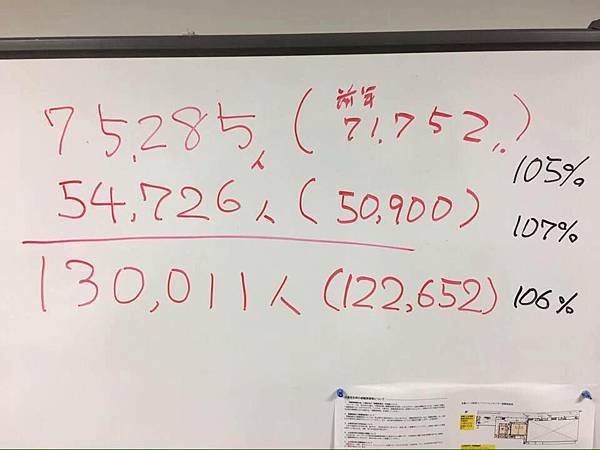 75,285人 (前年 71,752人) 105%
54,726人 (50,900) 107%
130,011人 (122,652) 106%